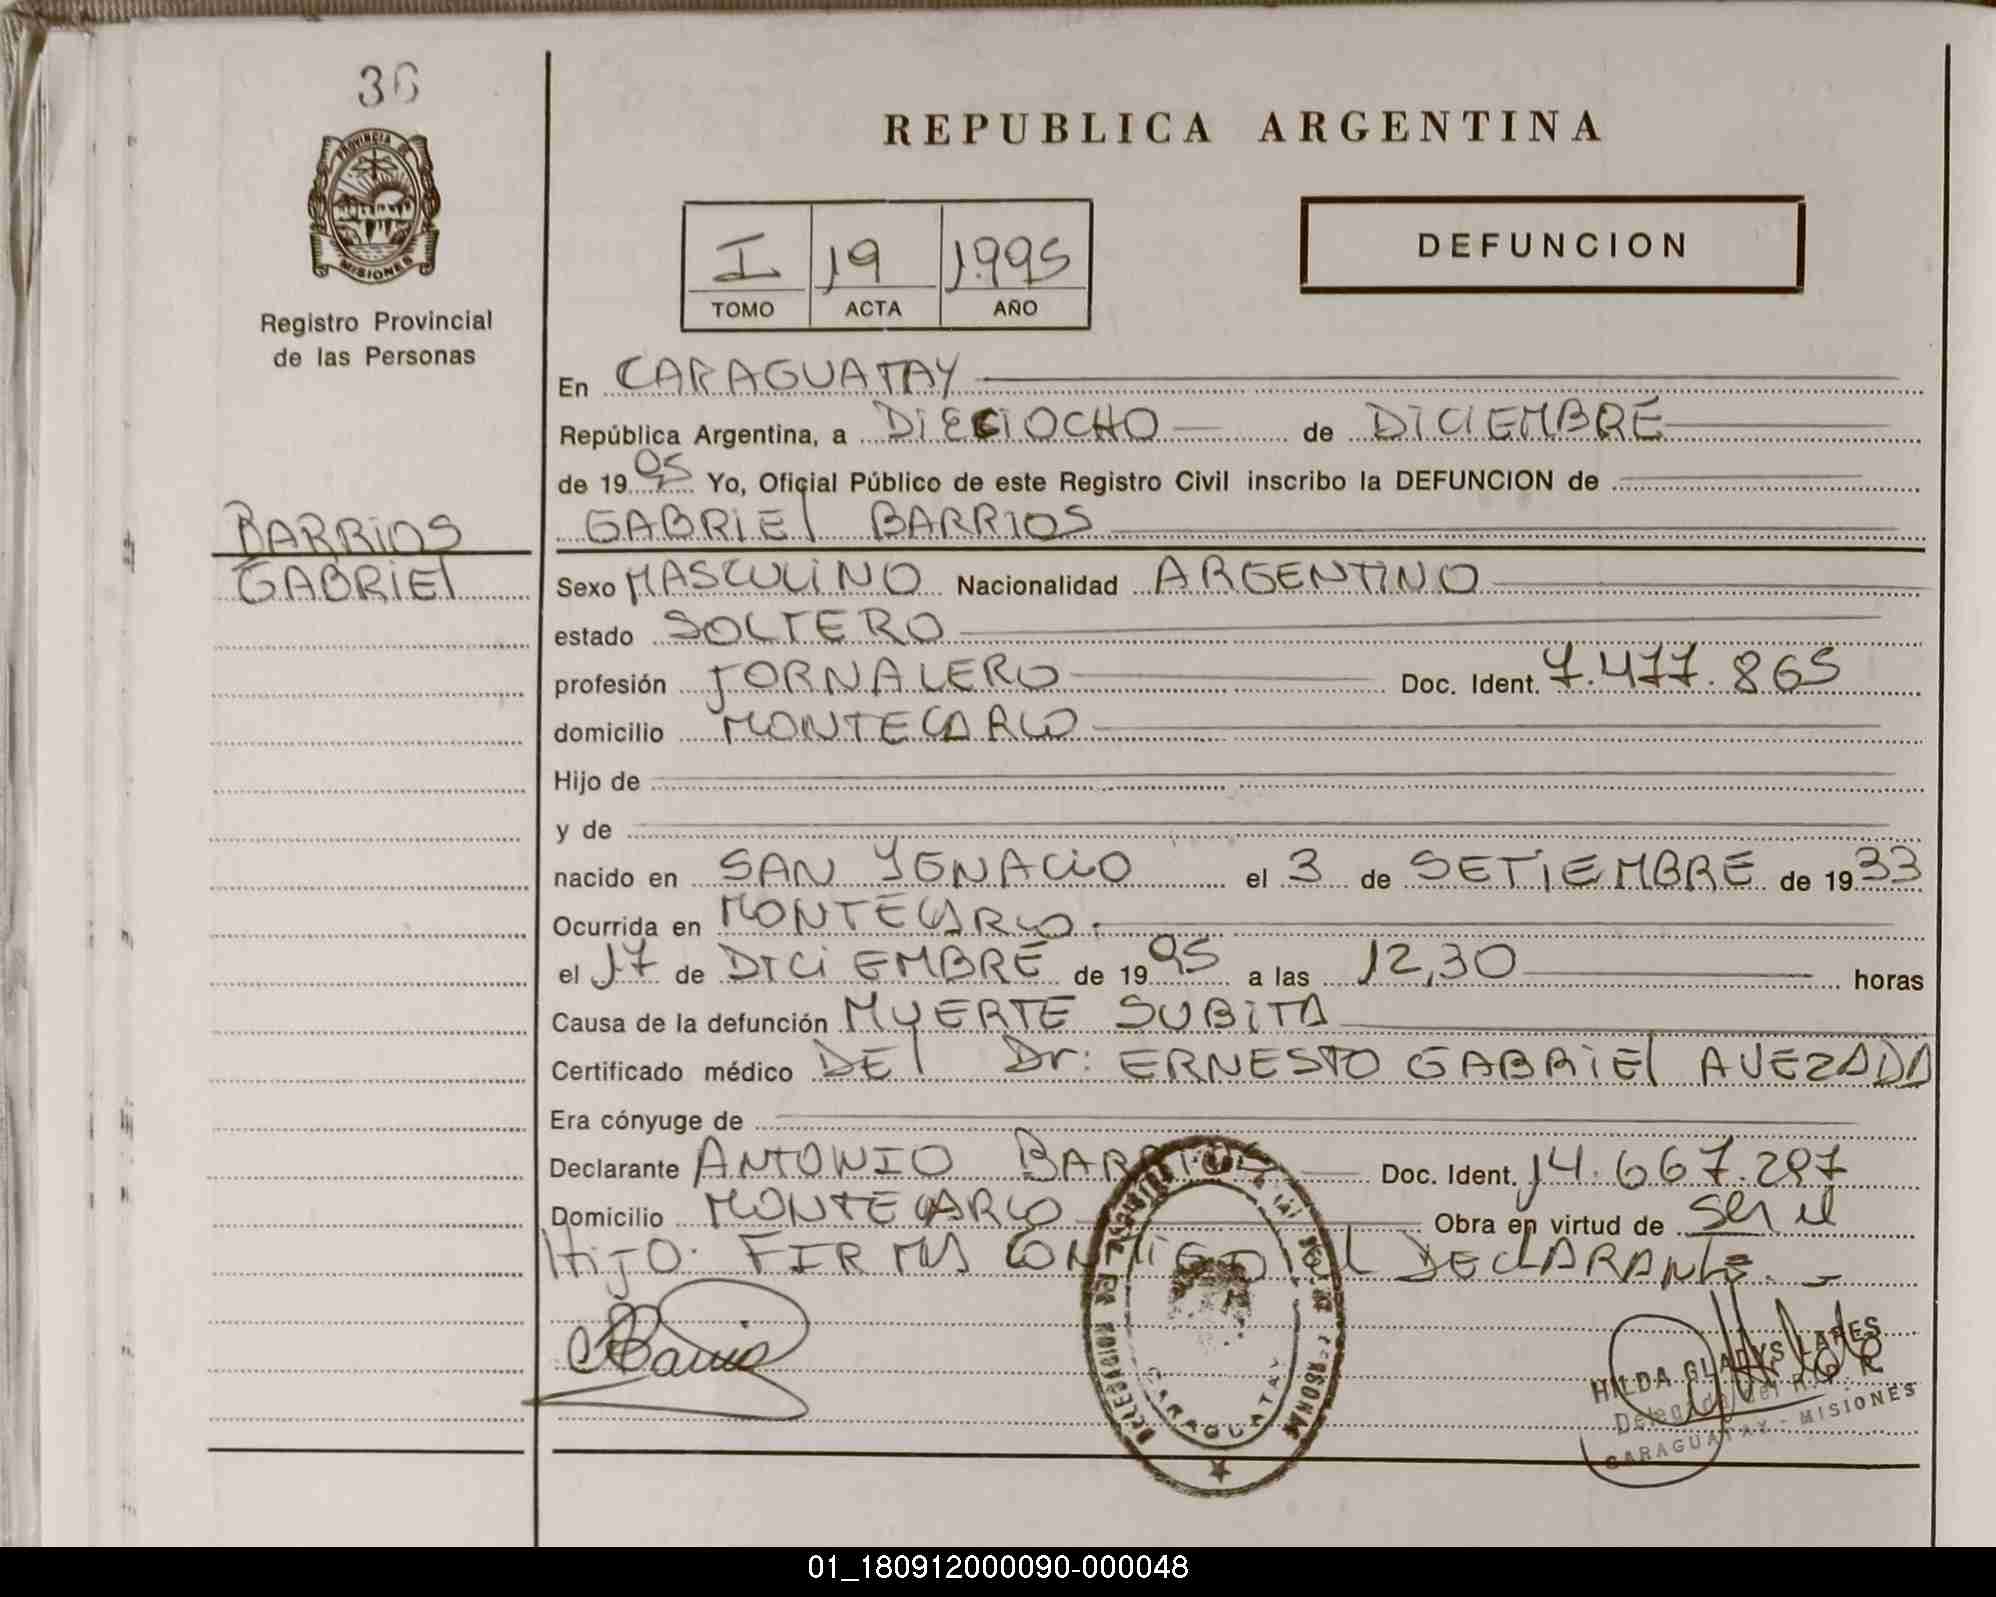 36
PROVINCIA DE
MISIONES
Registro Provincial
de las Personas
BARRIOS
GABRIEL
REPUBLICA ARGENTINA
I 19 1995
TOMO ACTA AÑO
DEFUNCION
En CARAGUATAY
República Argentina, a DIECIOCHO de DICIEMBRE
de 1995 Yo, Oficial Público de este Registro Civil inscribo la DEFUNCION de
GABRIEL BARRIOS
Sexo MASCULINO Nacionalidad ARGENTINO
estado SOLTERO
profesión JORNALERO Doc. Ident. 7.477.865
domicilio MONTECARLO
Hijo de
y de
nacido en SAN YGNACIO el 3 de SETIEMBRE de 1933
Ocurrida en MONTECARLO.
el 17 de DICIEMBRE de 1995 a las 12,30 horas
Causa de la defunción MUERTE SUBITA
Certificado médico DEL Dr: ERNESTO GABRIEL AVEZADA
Era cónyuge de
Declarante ANTONIO BARRIOS Doc. Ident. 14.667.297
Domicilio MONTECARLO Obra en virtud de ser el
HIJO. FIRMA CONMIGO EL DECLARANTE.
Barrios
CARAGUATAY
HILDA GLADYS LARES
Delegada del R. P.
CARAGUATAY - MISIONES
01_180912000090-000048